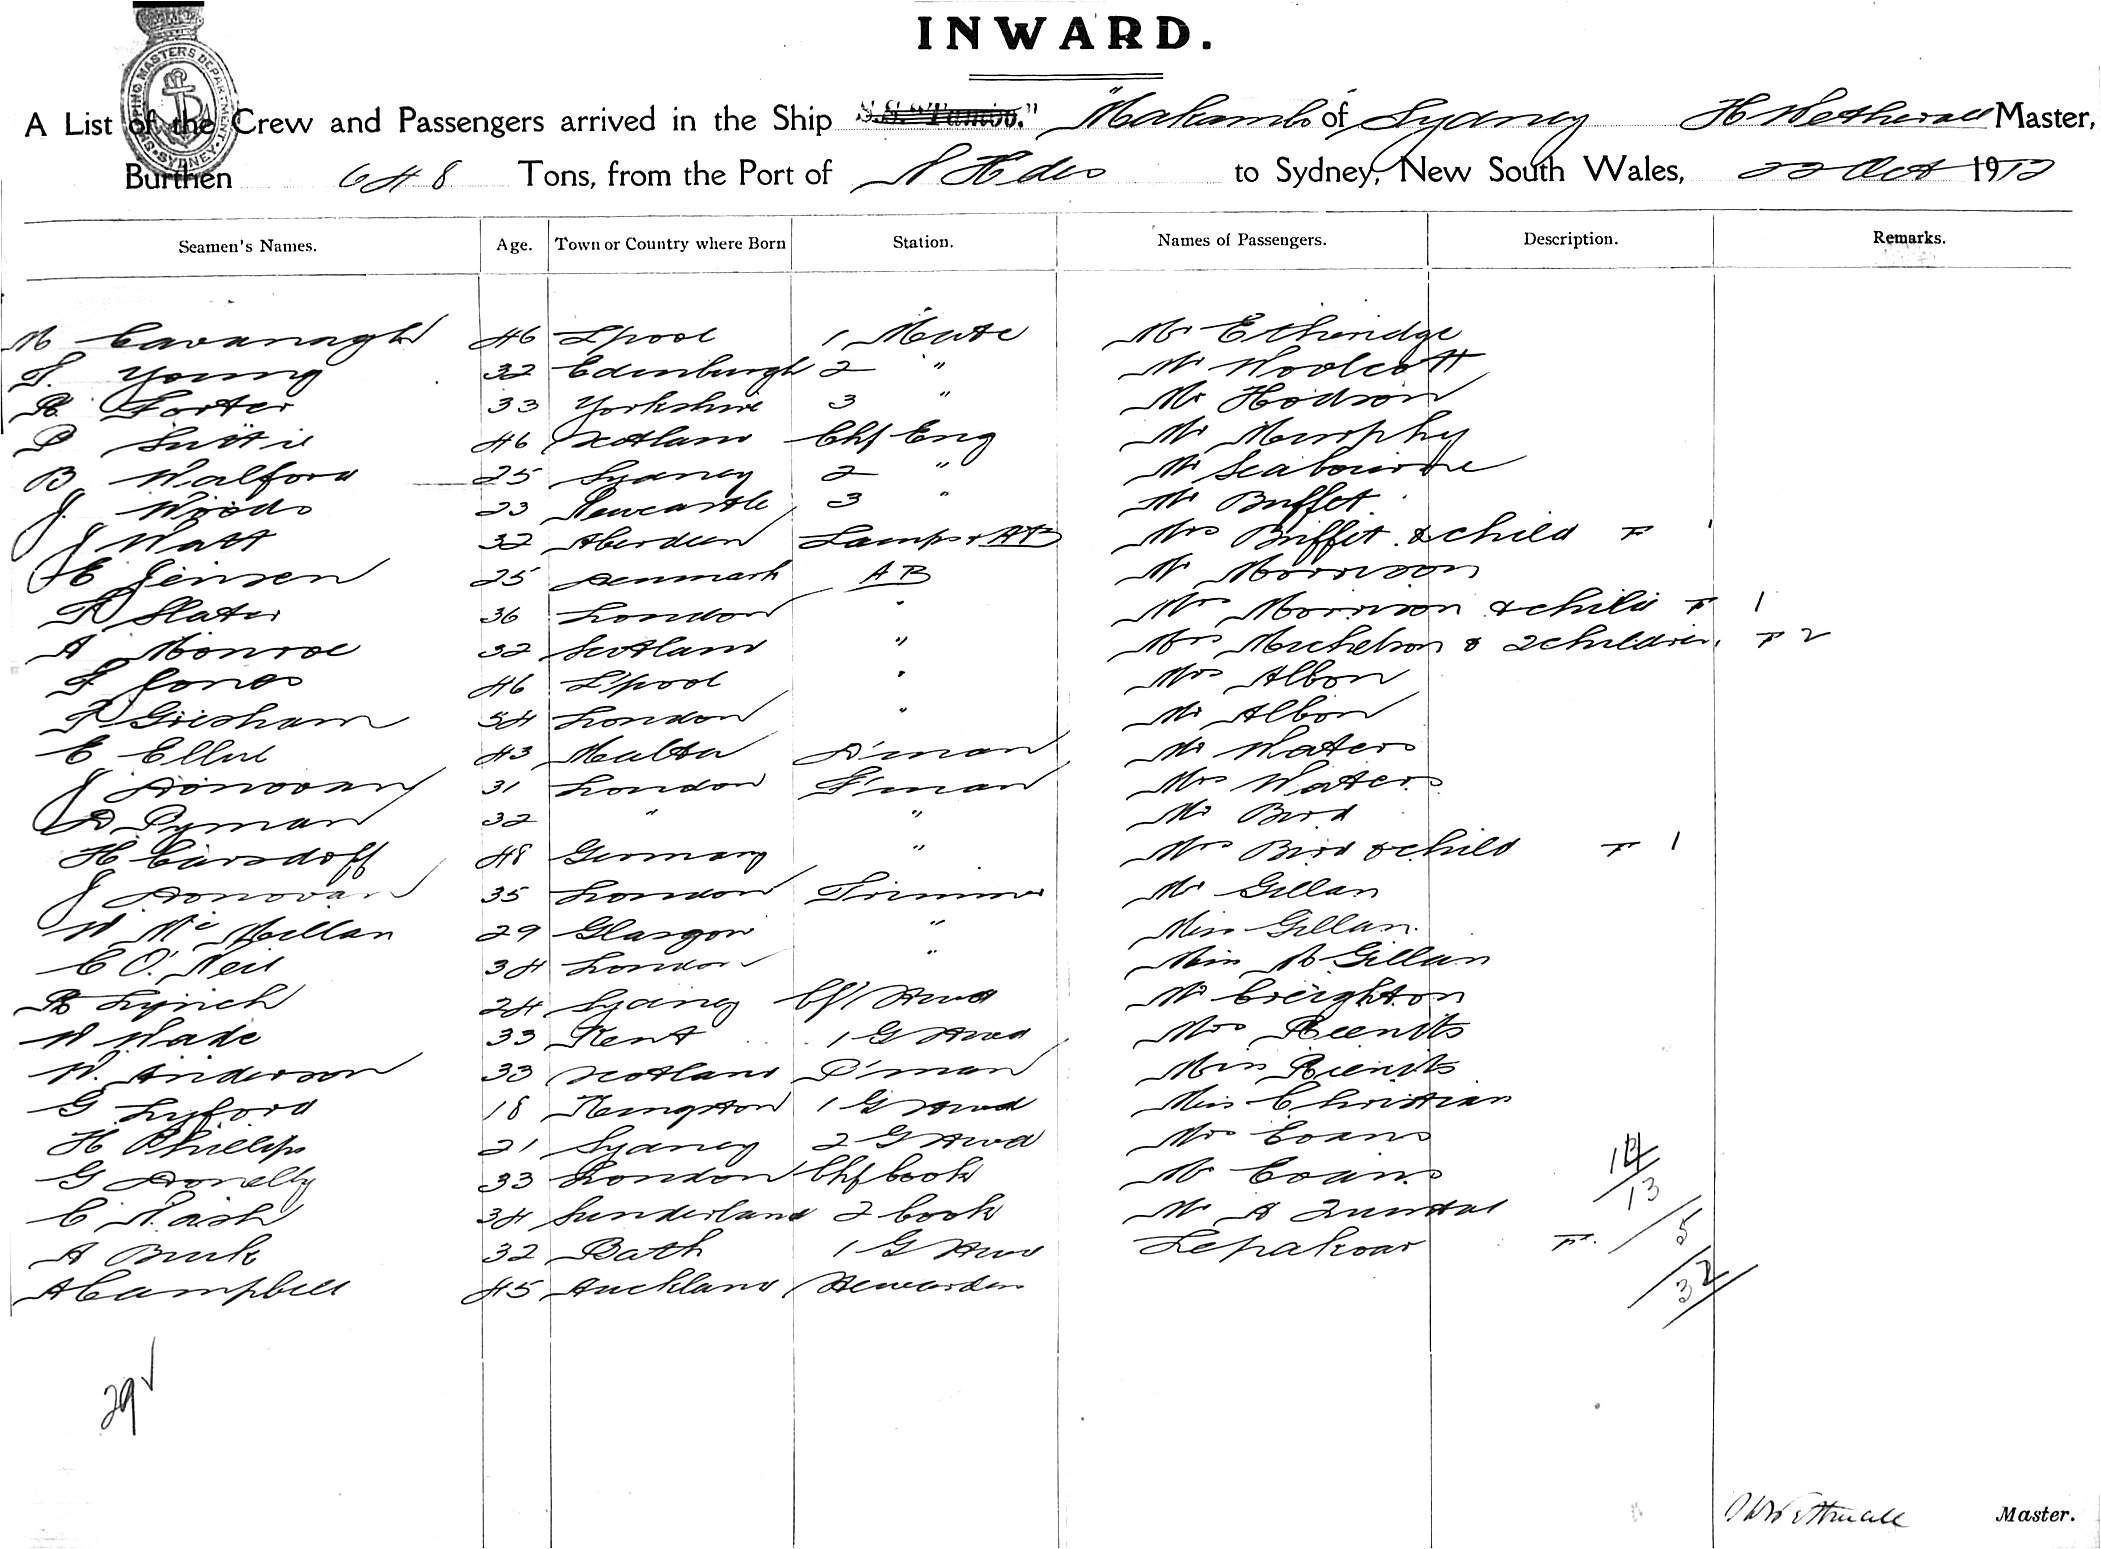 SHIPPING MASTERS DEPARTMENT SYDNEY
INWARD.
A List of the Crew and Passengers arrived in the Ship S.S. "Tambo." "Makambo" of Sydney H Wetherall Master,
Burthen 648 Tons, from the Port of N Hdes to Sydney, New South Wales, 22 Oct 1912
Seamen's Names. Age. Town or Country where Born Station. Names of Passengers. Description. Remarks.
M Cavanagh 46 L'pool 1 Mate Mr Etheridge
T. Young 32 Edinburgh 2 " Mr Woolcott
R Forter 33 Yorkshire 3 " Mr Hodson
P Suttie 46 Scotland Chf Eng Mr Murphy
B Walford 25 Sydney 2 " Mr Seabourne
J. Woods 23 Newcastle 3 " Mr Buffet
J Watt 32 Aberdeen Lamps & AB Mrs Buffet & child F 1
E Jensen 25 Denmark AB Mr Morrison
F Slater 36 London " Mrs Morrison & child F 1
A Monroe 32 Scotland " Mrs Michelson & 2 children. F 2
F Jones 46 L'pool " Mrs Albon
F Gresham 54 London " Mr Albon
E Ellul 43 Malta D'man Mr Waters
J Donovan 31 London F'man Mrs Waters
D Pyman 32 " " Mr Bird
H Carsdoff 48 Germany " Mrs Bird & child F 1
J Donovan 35 London Trimmer Mr Gillan
W McMillan 29 Glasgow " Miss Gillan.
C O'Neil 34 London " Miss M Gillan
R Lynch 24 Sydney Cf Stwd Mr Creighton
W Wade 33 Kent 1 G Stwd Mrs
W. Anderson 33 Scotland P'man Miss
G Lyford 18 Kempton 1 G Stwd Miss Christian
H Phillips 21 Sydney 2 G Stwd Mrs Evans
G Donelly 33 London Chf Cook Mr Evans 14/13
C Nash 34 Sunderland 2 Cook Mr A Quintal
A Buck 32 Bath 1 G Stwd Lepakoar F. / 5
A Campbell 45 Auckland Stewardess 32
29
H Wetherall Master.